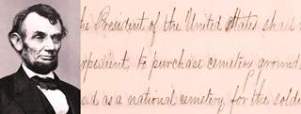 he President of the United States shall
expedient, to purchase cemetery grounds
ed as a national cemetery for the soldie